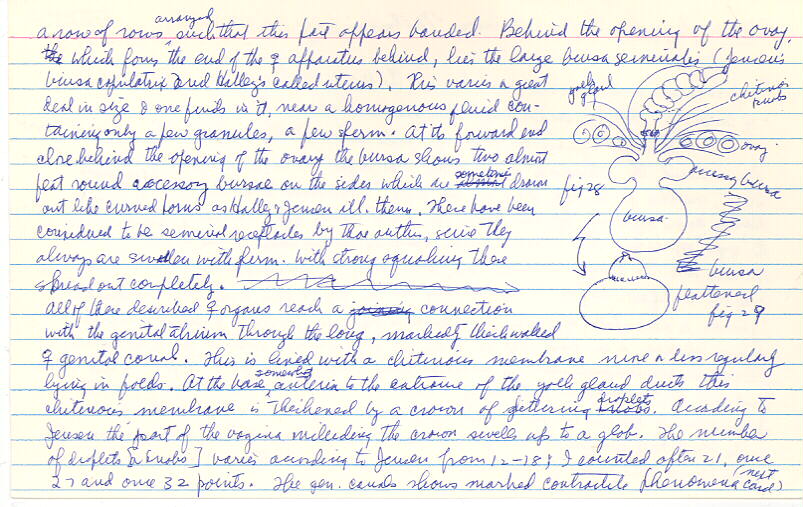 a row of rows arranged such that this part appears banded. Behind the opening of the ovary,
the which forms the end of the ♀ apparatus behind, lies the large bursa seminalis (Jensen's
bursa copulatrix and Hallez's called uterus). This varies a great
deal in size & one finds in it, near a homogenous fluid con-
taining only a few granules, a few sperm. At its forward end
close behind the opening of the ovary the bursa shows two almost
flat round accessory bursae on the sides which are sometimes drawn
out like curved horns as Hallez & Jensen ill. them. These have been
considered to be seminal receptacles by those authors, since they
always are swollen with sperm. With strong squashing these
spread out completely.
All of these described ♀ organs reach a joining connection
with the genital atrium through the long, markedly thick walled
♀ genital canal. This is lined with a chitinous membrane more or less regularly
lying in folds. At the base somewhat anterior to the entrance of the yolk gland ducts this
chitinous membrane is thickened by a crown of glittering knobs. droplets According to
Jensen the part of the vagina including the crown swells up to a glob. The number
of droplets [& knobs] varies according to Jensen from 12-18; I counted often 21, once
27 and once 32 points. The gen. canals shows marked contractile phenomena (next card)
yolk gland
chitinous knobs
ovary
accessory bursa
fig 28
bursa
bursa
flattened
fig 29